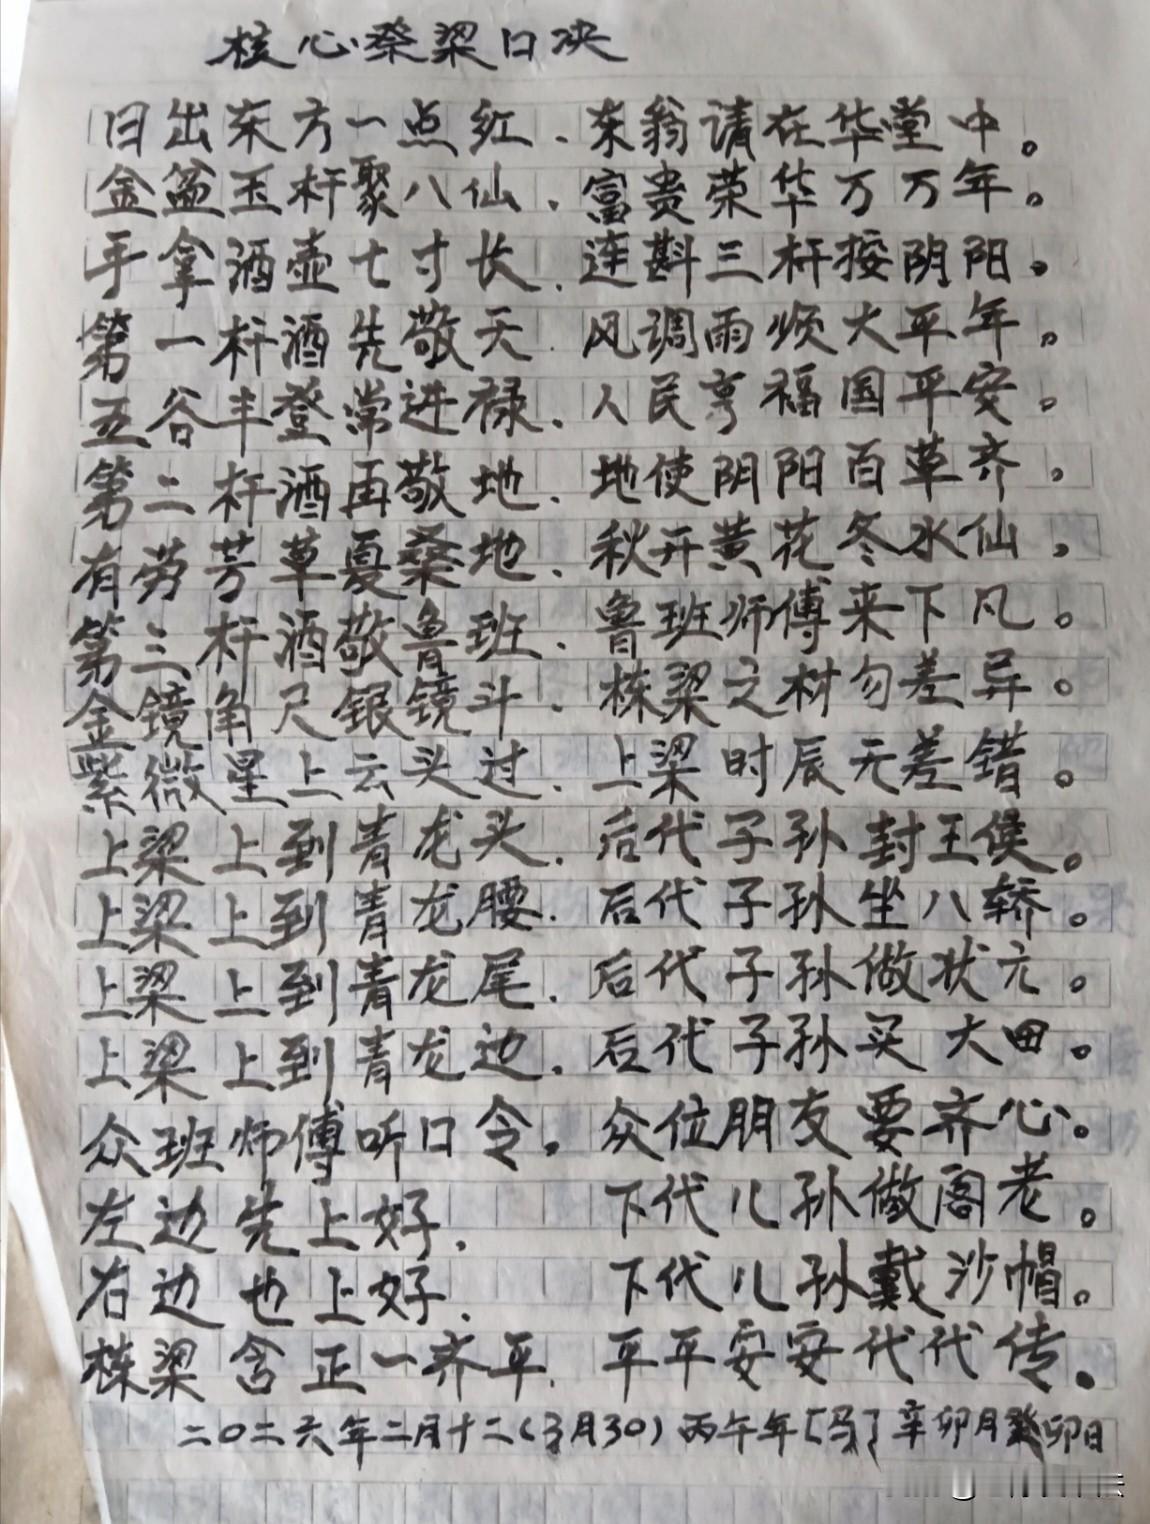 核心祭梁口决
日出东方一点红．东翁请在华堂中。
金盆玉杆聚八仙．富贵荣华万万年。
手拿酒壶七寸长．连斟三杆按阴阳。
第一杆酒先敬天．风调雨顺大平年。
五谷丰登常进禄．人民亨福国平安。
第二杆酒再敬地．地使阴阳百草齐。
有劳芳草夏桑地．秋开黄花冬水仙。
第三杆酒敬鲁班．鲁班师傅来下凡。
金镜角尺银镜斗．栋梁之材勿差异。
紫微星上云头过．上梁时辰无差错。
上梁上到青龙头．后代子孙封王侯。
上梁上到青龙腰．后代子孙坐八轿。
上梁上到青龙尾．后代子孙做状元。
上梁上到青龙边．后代子孙买大田。
众班师傅听口令。众位朋友要齐心。
左边先上好．下代儿孙做阁老。
右边也上好．下代儿孙戴沙帽。
栋梁含正一齐平．平平安安代代传。
二〇二六年二月十二(3月30)丙午年[马]辛卯月癸卯日